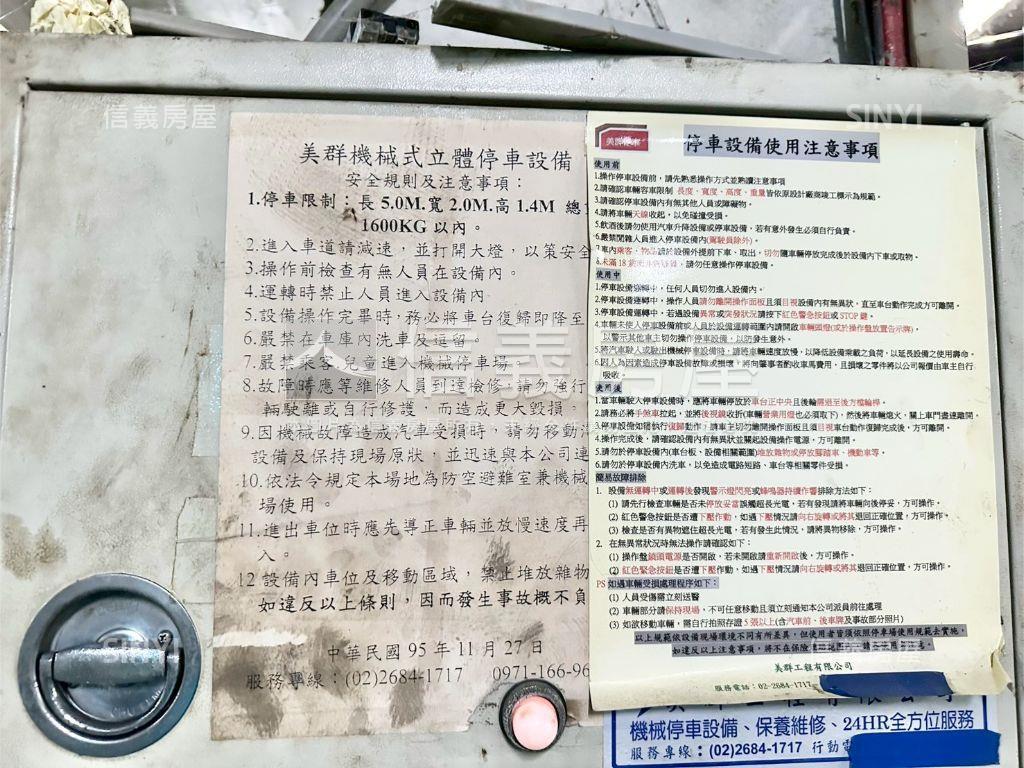 信義房屋
SINYI
美群機械式立體停車設備
安全規則及注意事項：
1.停車限制：長 5.0M.寬 2.0M.高 1.4M 總
1600KG 以內。
2.進入車道請減速，並打開大燈，以策安全
3.操作前檢查有無人員在設備內。
4.運轉時禁止人員進入設備內
5.設備操作完畢時,務必將車台復歸即降至
6.嚴禁在車庫內洗車及逗留。
7.嚴禁乘客兒童進入機械停車場
8.故障時應等維修人員到達檢修，請勿強行
輛駛離或自行修護，而造成更大毀損。
9.因機械故障造成汽車受損時，請勿移動
設備及保持現場原狀，並迅速與本公司連
10.依法令規定本場地為防空避難室兼機械
場使用。
11.進出車位時應先導正車輛並放慢速度再
入。
12 設備內車位及移動區域，禁止堆放雜物
如違反以上條則，因而發生事故概不負
中華民國 95 年 11 月 27 日
服務專線：(02)2684-1717 0971-166-96
美群停車
停車設備使用注意事項
使用前
1.操作停車設備前，請先熟悉操作方式並熟讀注意事項
2.請確認車輛容車限制 長度、寬度、高度、重量皆依原設計廠商竣工標示為規範。
3.請確認停車設備內有無其他人員或障礙物。
4.請將車輛天線收起，以免碰撞受損。
5.飲酒後請勿使用汽車升降設備或停車設備，若有意外發生必須自行負責。
6.嚴禁閒雜人員進人停車設備內(駕駛員除外)。
7.車內乘客、物品請於設備外提前下車、取出，切勿隨車輛停放完成後於設備內下車或取物。
8.未滿 18 歲，請勿任意操作停車設備。
使用中
1.停車設備運轉中，任何人員切勿進人設備內。
2.停車設備運轉中，操作人員請勿離開操作面板且須目視設備內有無異狀，直至車台動作完成方可離開。
3.停車設備運轉中，若遇設備異常或突發狀況請按下紅色警急按鈕或 STOP 鍵。
4.車輛未使人停車設備前或人員於設備運轉範圍內請開啟車輛頭燈(或於操作盤放置告示牌)，
以警示其他車主切勿操作停車設備，以防發生意外。
5.將汽車駛人或駛出機械停車設備時，請將車輛速度放慢，以降低設備乘載之負荷，以延長設備之使用壽命。
6.因人為因素造成停車設備故障或損壞，將向肇事者酌收車馬費用，且損壞之零件將以公司報價由車主自行
吸收。
使用後
1.當車輛駛人停車設備時，應將車輛停放於車台正中央且後輪層退至後方檔輪桿。
2.請務必將手煞車拉起，並將後視鏡收折(車輛營業用燈也必須取下)，然後將車輛熄火、關上車門盡速離開。
3.停車設備如須執行復歸動作，請車主切勿離開操作面板且須目視車台動作復歸完成後，方可離開。
4.操作完成後，請確認設備內有無異狀並關起設備操作電源，方可離開。
5.請勿於停車設備內(車台板、設備相關範圍)堆放雜物或停放腳踏車、機動車等。
6.請勿於停車設備內洗車，以免造成電路短路、車台等相關零件受損。
簡易故障排除
1. 設備無運轉中或運轉後發現警示燈閃亮或蜂鳴器持續作響排除方法如下：
(1) 請先行檢查車輛是否未停放妥當誤觸超長光電，若有發現請將車輛向後停妥，方可操作。
(2) 紅色警急按鈕是否遭下壓作動，如遇下壓情況請向右旋轉或將其退回正確位置，方可操作。
(3) 檢查是否有異物遮住超長光電，若有發生此情況，請將異物移除，方可操作。
2. 在無異常狀況時無法操作請確認如下：
(1) 操作盤鎖頭電源是否開啟，若未開啟請重新開啟後，方可操作。
(2) 紅色緊急按鈕是否遭下壓作動，如遇下壓情況請向右旋轉或將其退回正確位置，方可操作。
PS 如遇車輛受損處理程序如下：
(1) 人員受傷需立刻送醫
(2) 車輛部分請保持現場，不可任意移動且須立刻通知本公司派員前往處理
(3) 如欲移動車輛，需自行拍照存證 5 張以上(含汽車前、後車牌及事故部分照片)
以上規範依設備現場環境不同有所差異，但使用者皆須依照停車場使用規範去實施，
如違反以上注意事項，將不在保險
美群工程有限公司
服務電話：02-2684-1717
機械停車設備、保養維修、24HR全方位服務
服務專線：(02)2684-1717 行動電
信義房屋
SINYI